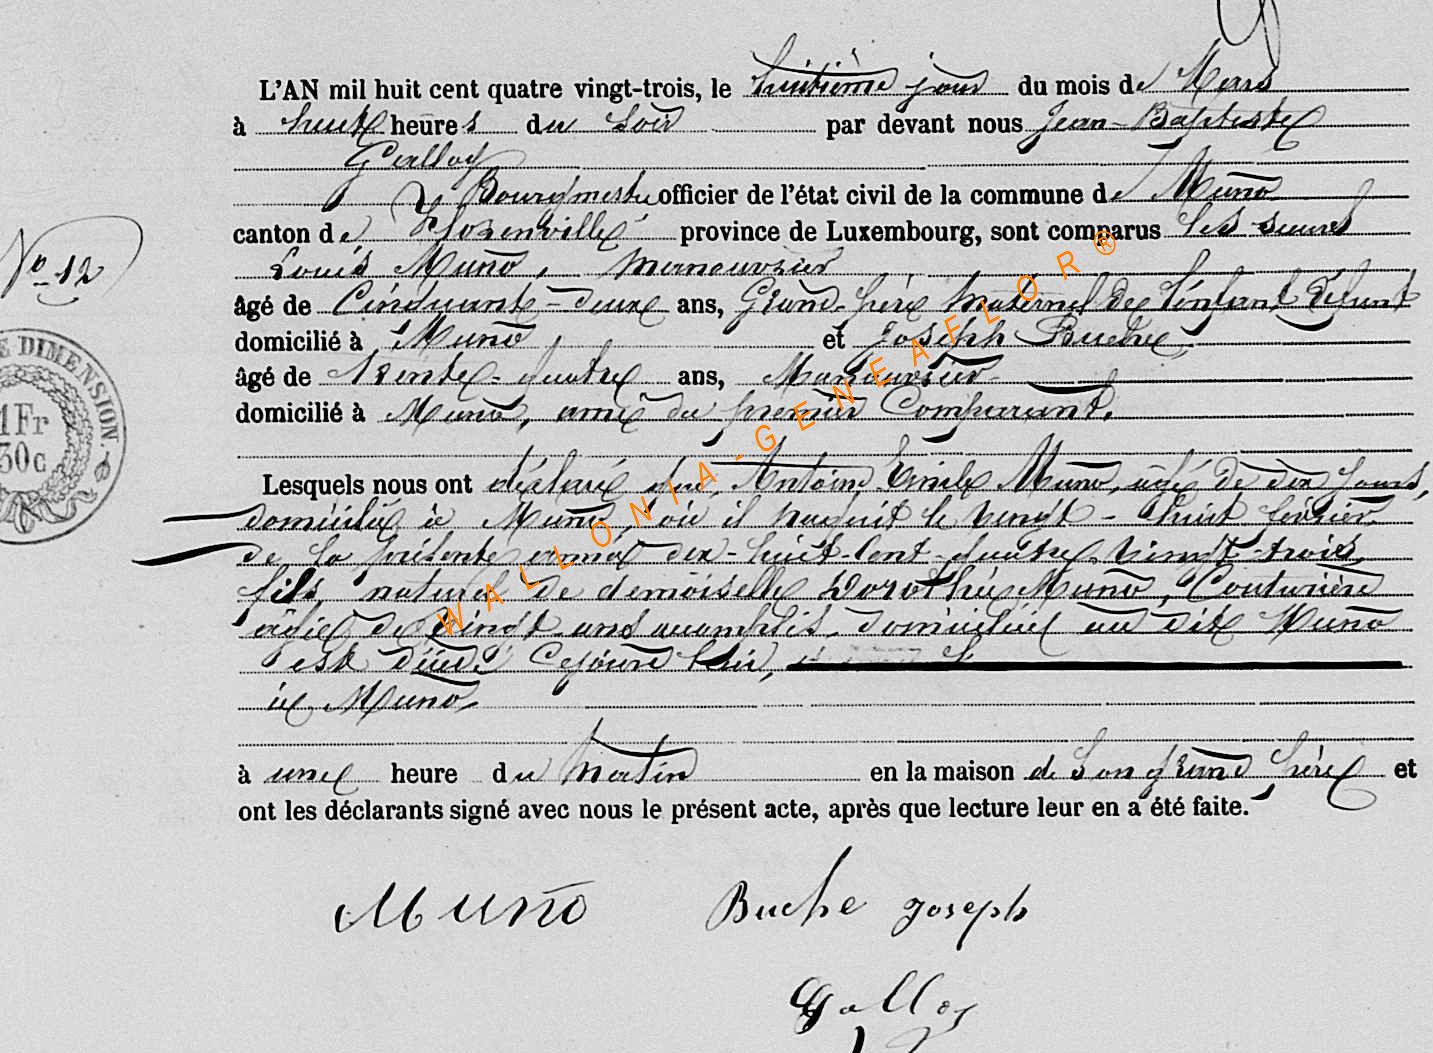 L'AN mil huit cent quatre vingt-trois, le huitième jour du mois de Mars
à huit heures du soir par devant nous Jean-Baptiste
Galloy
Bourgmestre officier de l'état civil de la commune de Muno
canton de Florenville province de Luxembourg, sont comparus les sieurs
Louis Muno, manouvrier
âgé de Cinquante-deux ans, Grand-père maternel de l'enfant défunt
domicilié à Muno, et Joseph Buche,
âgé de trente-quatre ans, Manouvrier
domicilié à Muno, ami du premier Comparant.
Lesquels nous ont déclaré que, Antoine Emile Muno, âgé de dix jours,
domicilié à Muno, où il naquit le vingt-huit février
de la présente année dix-huit-cent-quatre vingt-trois,
fils naturel de demoiselle Dorothée Muno, Couturière
âgée de vingt ans accomplis, domiciliée au dit Muno
est décédé Cejourd'hui,
à Muno,
à une heure du matin en la maison de son grand père et
ont les déclarants signé avec nous le présent acte, après que lecture leur en a été faite.
No 12
E DIMENSION
1Fr
30c
WALLONIA-GENEAFLOR®
Muno Buche joseph
Galloy